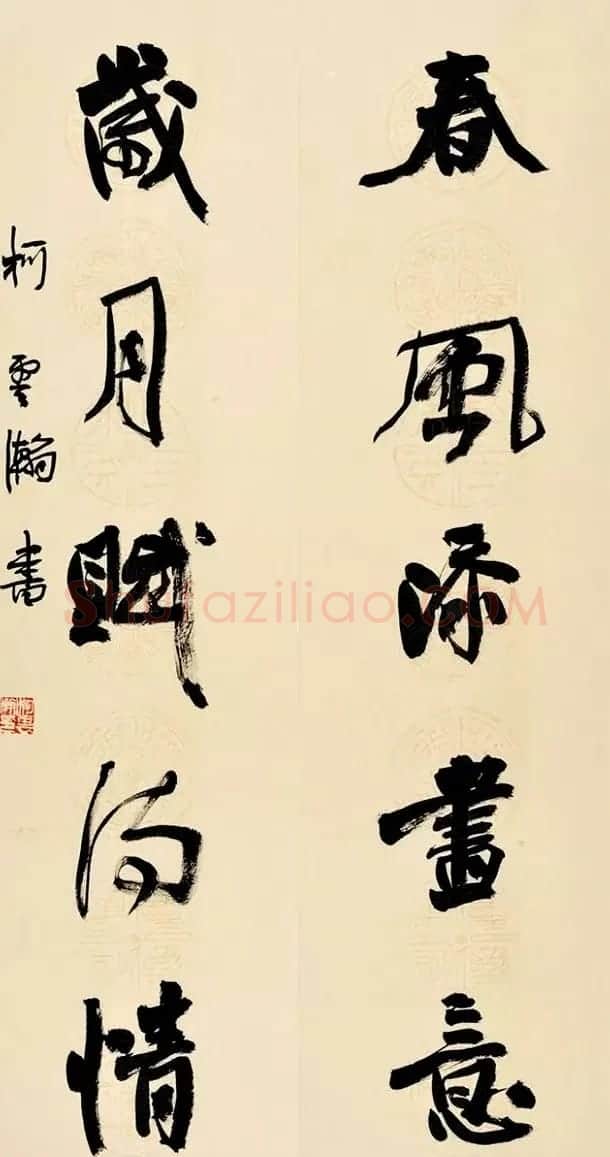 春風添畫意
歲月賦詩情
柯雲瀚書
Shufaziliao.COM